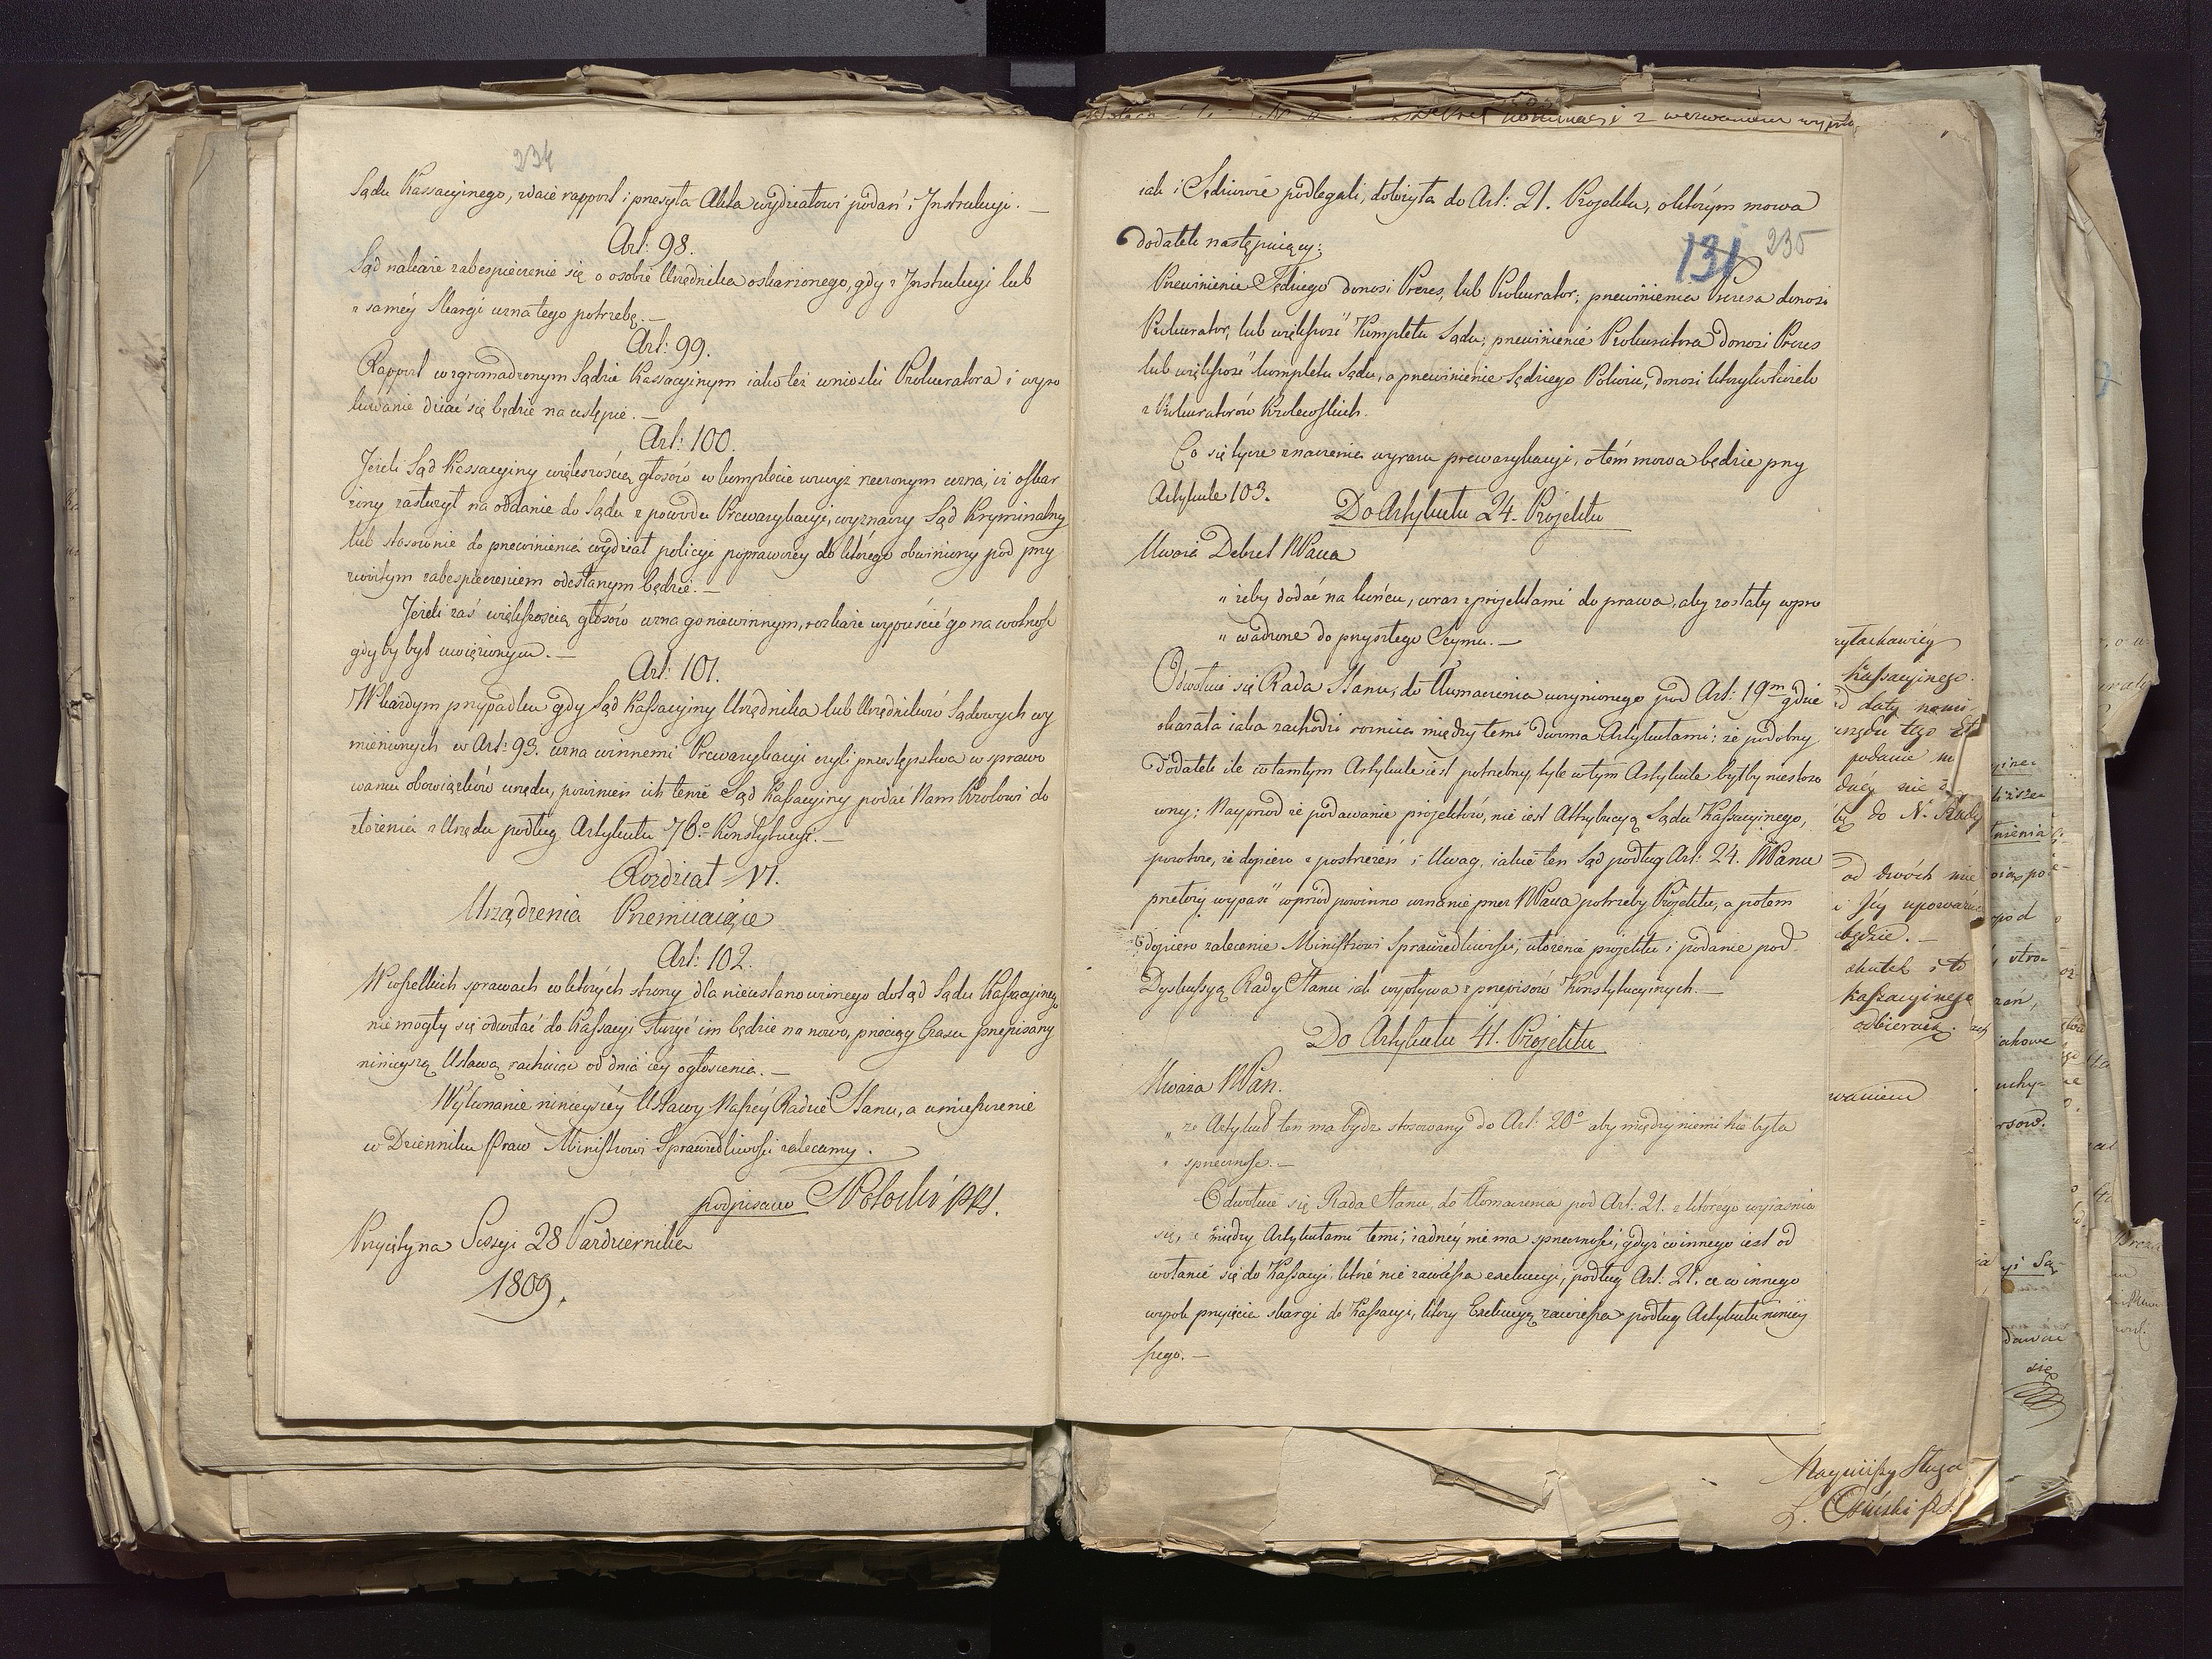 234
Sądu Kassacyinego, zdaie rapport i przesyła Akta wydziałowi podań i Instrukcyi. —
Art: 98.
Sąd nakaże zabespieczenie się o osobie Urzędnika oskarżonego, gdy z Instrukcyi lub
z saméy skargi uzna tego potrzebę. —
Art: 99.
Rapport w zgromadzonym Sądzie Kassacyinym iako też wnioski Prokuratora i wyro
kowanie dziać się będzie na ustępie. —
Art: 100.
Jeżeli Sąd Kassacyiny większością głosów w komplecie wwyż rzeczonym uzna, iż oskar
żony zasłużył na oddanie do Sądu z powodu Prewarykacyi, wyznaczy Sąd Kryminalny
lub stosownie do przewinienia wydział policyi poprawczey do którego obwiniony pod przy
zwoitym zabespieczeniem odesłanym będzie. —
Jeżeli zaś większością głosów uzna go niewinnym, rozkaże wypuścić go na wolność
gdyby był uwięzionym. —
Art: 101.
W każdym przypadku gdy Sąd Kassacyiny Urzędnika lub Urzędników Sądowych wy
mienionych w Art: 93. uzna winnemi Prewarykacyi czyli przestępstwa w sprawo
waniu obowiązków urzędu, powinien ich tenże Sąd Kassacyiny podać Nam Krolowi do
złożenia z Urzędu podług Artykułu 76º Konstytucyi. —
Rozdział VI.
Urządzenia Przemiiaiące
Art: 102.
W wszelkich sprawach w których strony dla nieustanowionego dotąd Sądu Kassacyinego
nie mogły się odwołać do Kassacyi służyć im będzie na nowo, przeciąg Czasu przepisany
ninieyszą Ustawą rachuiąc od dnia iey ogłoszenia. —
Wykonanie ninieyszéy Ustawy Naszéy Radzie Stanu, a umieszczenie
w Dzienniku Praw Ministrowi Sprawiedliwości zalecamy.
podpisano S Potocki PRS.
Przyięty na Sessyi 28 Października
1809.
iak i Sędziowie podlegali, dołożyła do Art: 21. Projektu, o którym mowa
dodatek następuiący:
131 235
Przewinienie Sędziego donosi Prezes, lub Prokurator; przewinienia Prezesa donosi
Prokurator, lub większość Kompletu Sądu; przewinienie Prokuratora donosi Prezes
lub większość kompletu Sądu, a przewinienie Sędziego Pokoiu, donosi którykolwiek
z Prokuratorów Krolewskich.
Co się tycze znaczenia wyrazu prewarykacyi, o tém mowa będzie przy
Artykule 103.
Do Artykułu 24. Projektu
Uważa Dekret NPana
„ żeby dodać na końcu, wraz z projektami do prawa, aby zostały wpro
„ wadzone do przyszłego Seymu. —
Odwołuie się Rada Stanu, do Tłumaczenia uczynionego pod Art: 19m gdzie
okazała iaka zachodzi rożnica między temi dwoma Artykułami; że podobny
dodatek ile w tamtym Artykule iest potrzebny, tyle w tym Artykule byłby niestoso
wny; Nayprzod że podawanie projektów, nie iest Attrybucyą Sądu Kassacyinego,
powtore, że dopiero z postrzeżeń i Uwag, iakie ten Sąd podług Art: 24. NPanu
przełoży wypaść wprzod powinno uznanie przez NPana potrzeby Projektu, a potem
dopiero zalecenie Ministrowi Sprawiedliwości, ułożenie projektu i podanie pod
Dyskussyą Rady Stanu iak wypływa z przepisów Konstytucyinych. —
Do Artykułu 41. Projektu
Uważa NPan.
„ że Artykuł ten ma bydź stosowany do Art: 20º aby między niemi nie była
„ sprzeczność. —
Odwołuie się Rada Stanu, do tłomaczenia pod Art: 21. z którego wyiaśnia
się, że między Artykułami temi, żadnéy nie ma sprzeczności, gdyż co innego iest od
wołanie się do Kassacyi, które nie zawiesza exekucyi, podług Art. 21. a co innego
wyrok przyięcia skargi do Kassacyi, który Exekucyą zawiesza podług Artykułu niniey
szego. —
Kassacyinego.
podanie
od dwóch
będzie. —
Kassacyinego
odbieraią.
Nayniższy Sługa
L. Osiński